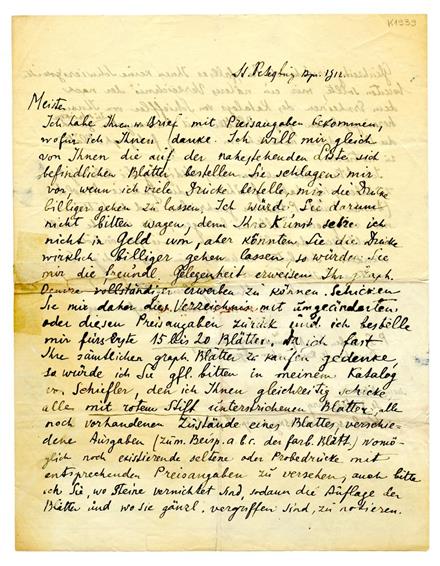 K1939
St. Petersburg 1912.
Meister
Ich habe Ihren w. Brief mit Preisangaben bekommen,
wofür ich Ihnen danke. Ich will mir gleich
von Ihnen die auf der nahestehenden Liste sich
befindlichen Blätter bestellen. Sie schlagen mir
vor, wenn ich viele Drucke bestelle, mir die Drucke
billiger gehen zu lassen. Ich würde Sie darum
nicht bitten wagen, denn Ihre Kunst setze ich
nicht in Geld um, aber könnten Sie die Drucke
wirklich billiger gehen lassen so würden Sie
mir die freundl. Gelegenheit erweisen Ihr graph.
Oeuvre vollständiger erwerben zu können. Schicken
Sie mir daher dies Verzeichnis mit umgeänderten
oder diesen Preisangaben zurück und ich bestelle
mir fürs erste 15 bis 20 Blätter, da ich fast
Ihre sämtlichen graph. Blätter zu kaufen gedenke,
so würde ich Sie gfl. bitten in meinem Katalog
von Schiefler, den ich Ihnen gleichzeitig schicke
alle mit rotem Stift unterstrichenen Blätter, alle
noch vorhandenen Zustände eines Blattes, verschie-
dene Ausgaben (zum Beisp. a b c. der farb. Blätt.) womö-
glich noch existierende seltene oder Probedrucke mit
entsprechenden Preisangaben zu versehen, auch bitte
ich Sie, wo Steine vernichtet sind, sodann die Auflage der
Blätter und wo sie gänzl. vergriffen sind, zu notieren.